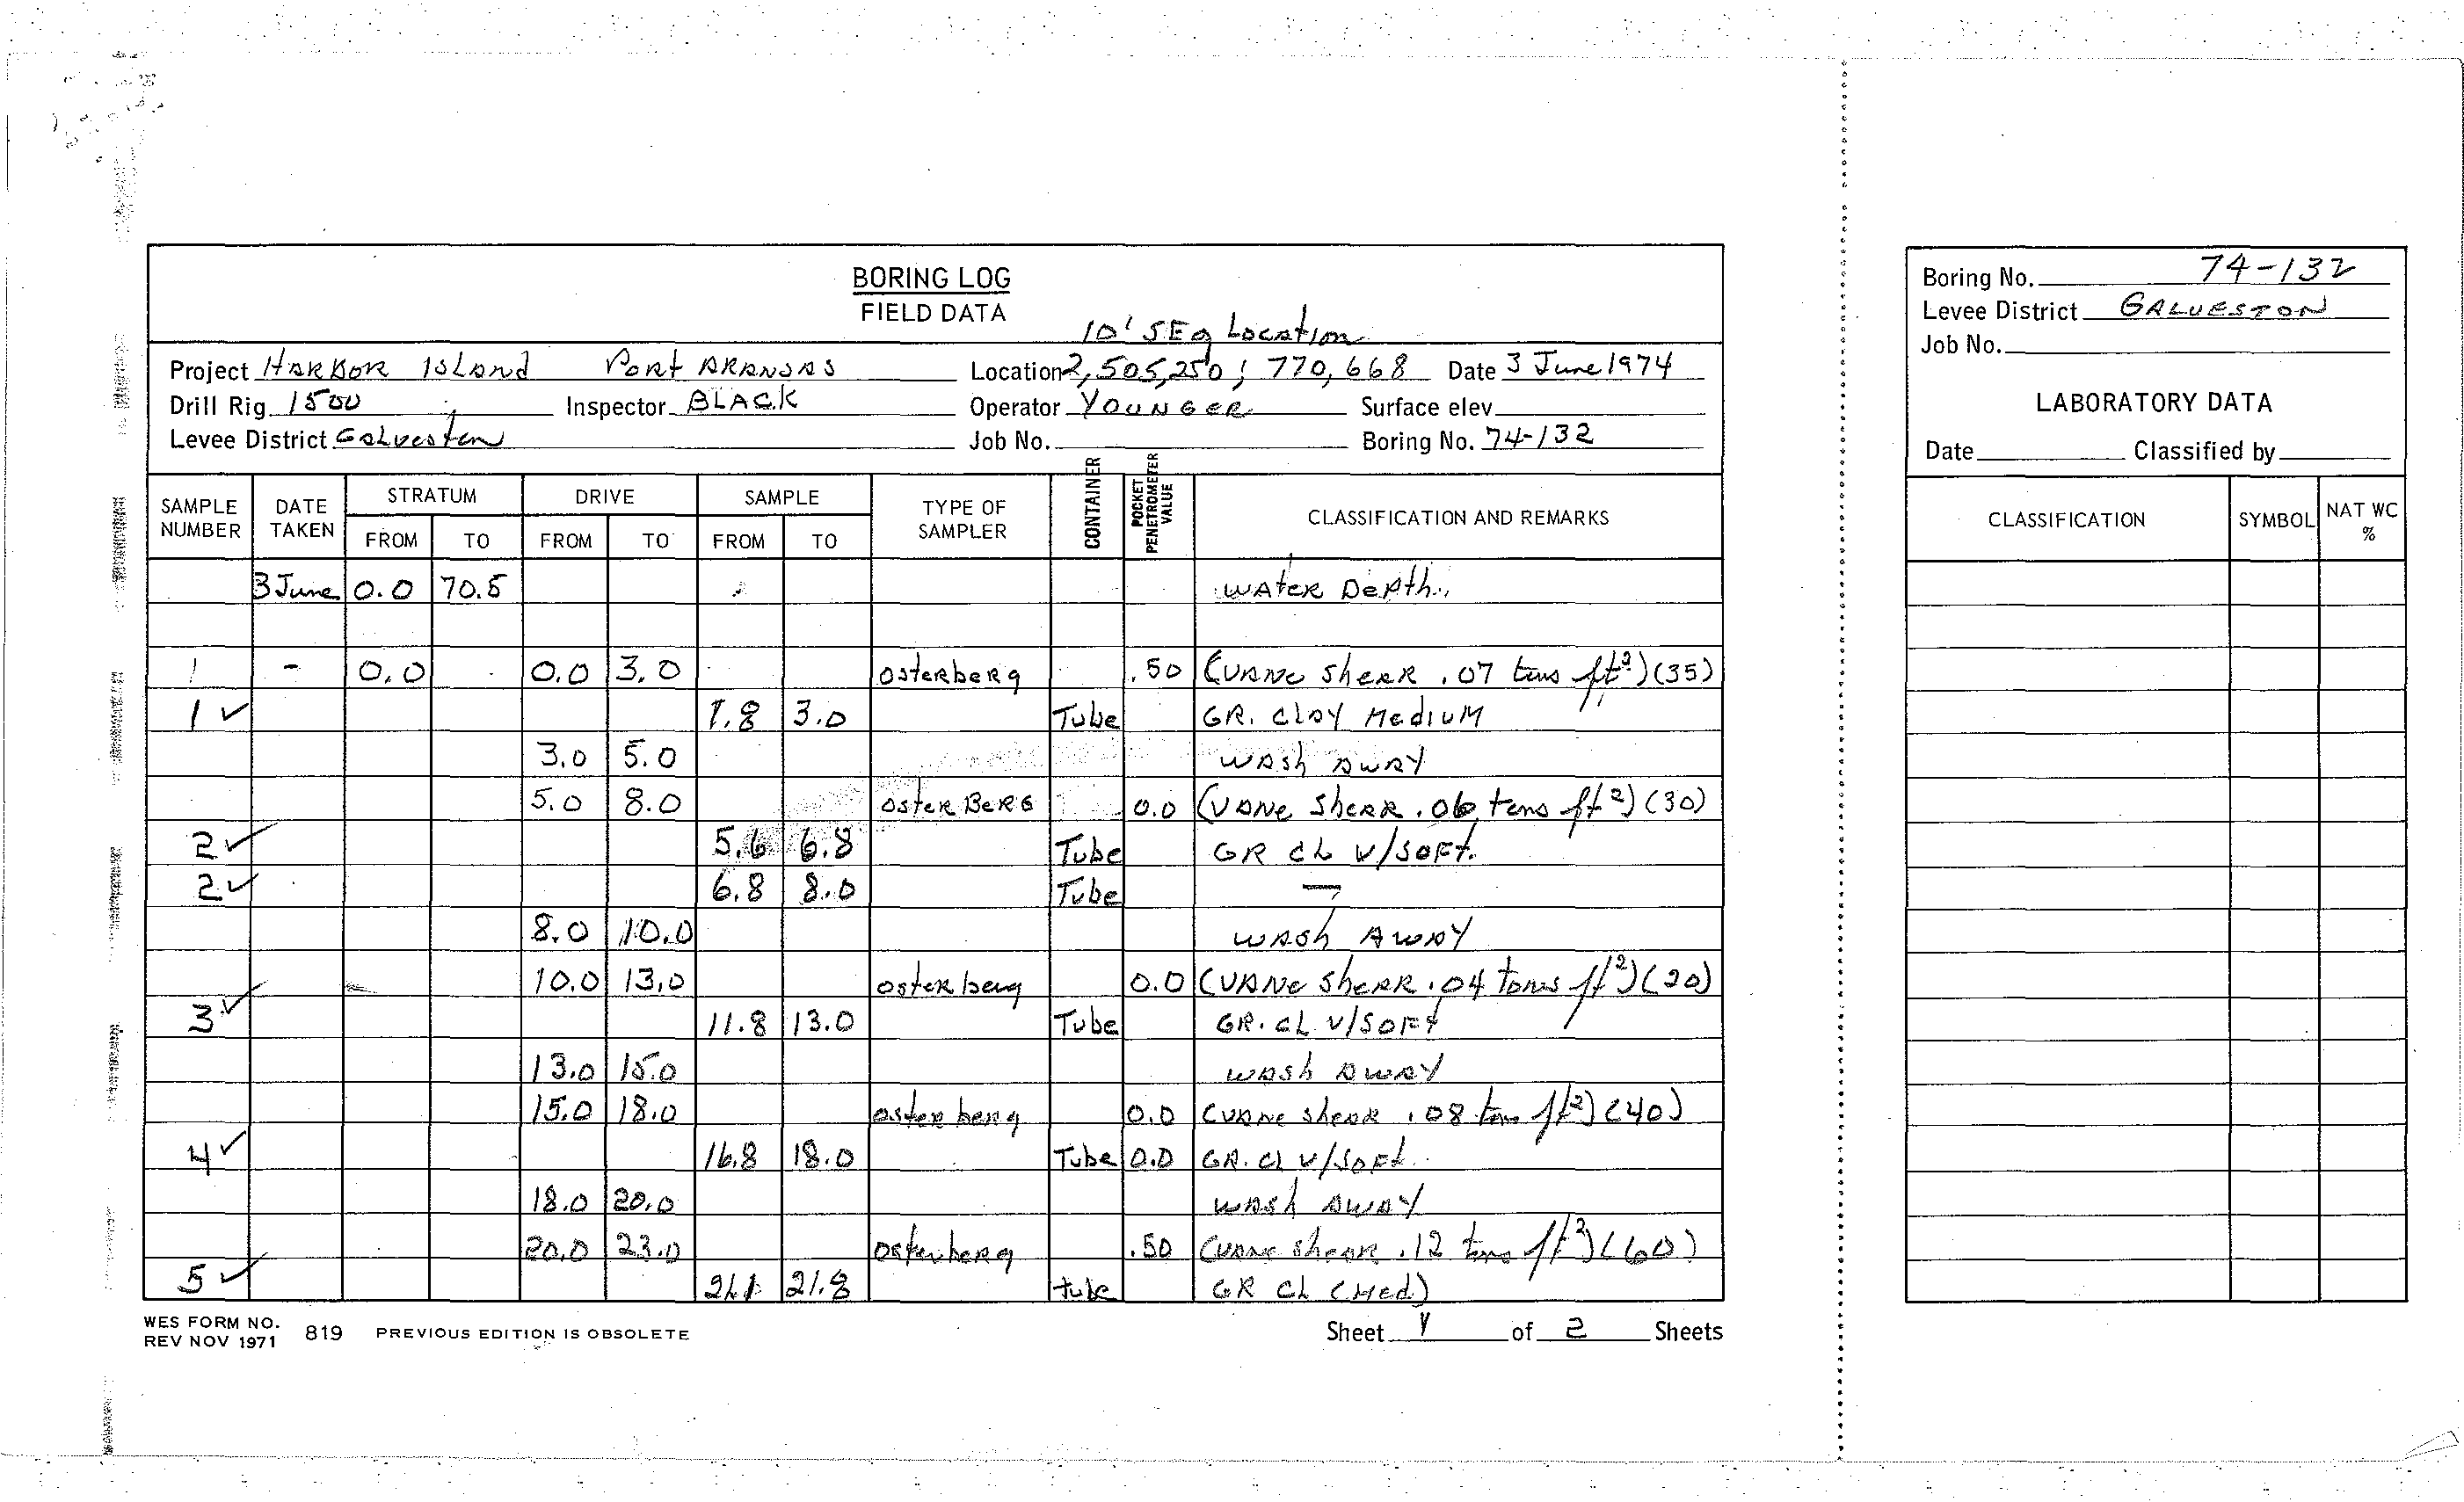 BORING LOG
FIELD DATA
10' SE of Location
Project HARBOR ISLAND PORT ARANSAS Location 2,505,250; 770,668 Date 3 June 1974
Drill Rig 1500 Inspector BLACK Operator YOUNGER Surface elev.
Levee District Galveston Job No. Boring No. 74-132
SAMPLE NUMBER DATE TAKEN STRATUM FROM TO DRIVE FROM TO SAMPLE FROM TO TYPE OF SAMPLER CONTAINER POCKET PENETROMETER VALUE CLASSIFICATION AND REMARKS
3 June 0.0 70.5 WATER Depth
1 - 0.0 0.0 3.0 osterberg .50 (VANE shear .07 tons ft²) (35)
1 ✓ 1.8 3.0 Tube GR. CLAY MEDIUM
3.0 5.0 WASH AWAY
5.0 8.0 OSTERBERG 0.0 (VANE shear .06 tons ft²) (30)
2 ✓ 5.6 6.8 Tube GR CL V/SOFT.
2 ✓ 6.8 8.0 Tube
8.0 10.0 WASH AWAY
10.0 13.0 osterberg 0.0 (VANE shear .04 tons ft²) (20)
3 ✓ 11.8 13.0 Tube GR. CL V/SOFT
13.0 15.0 WASH AWAY
15.0 18.0 osterberg 0.0 (VANE shear .08 ton ft²) (40)
4 ✓ 16.8 18.0 Tube 0.0 GR. Cl V/SOFT.
18.0 20.0 WASH AWAY
20.0 23.0 osterberg .50 (VANE shear .12 tons ft²) (60)
5 ✓ 21.8 tube GR CL (Med)
WES FORM NO. 819 PREVIOUS EDITION IS OBSOLETE
REV NOV 1971
Sheet 1 of 2 Sheets
Boring No. 74-132
Levee District GALVESTON
Job No.
LABORATORY DATA
Date Classified by
CLASSIFICATION SYMBOL NAT WC %